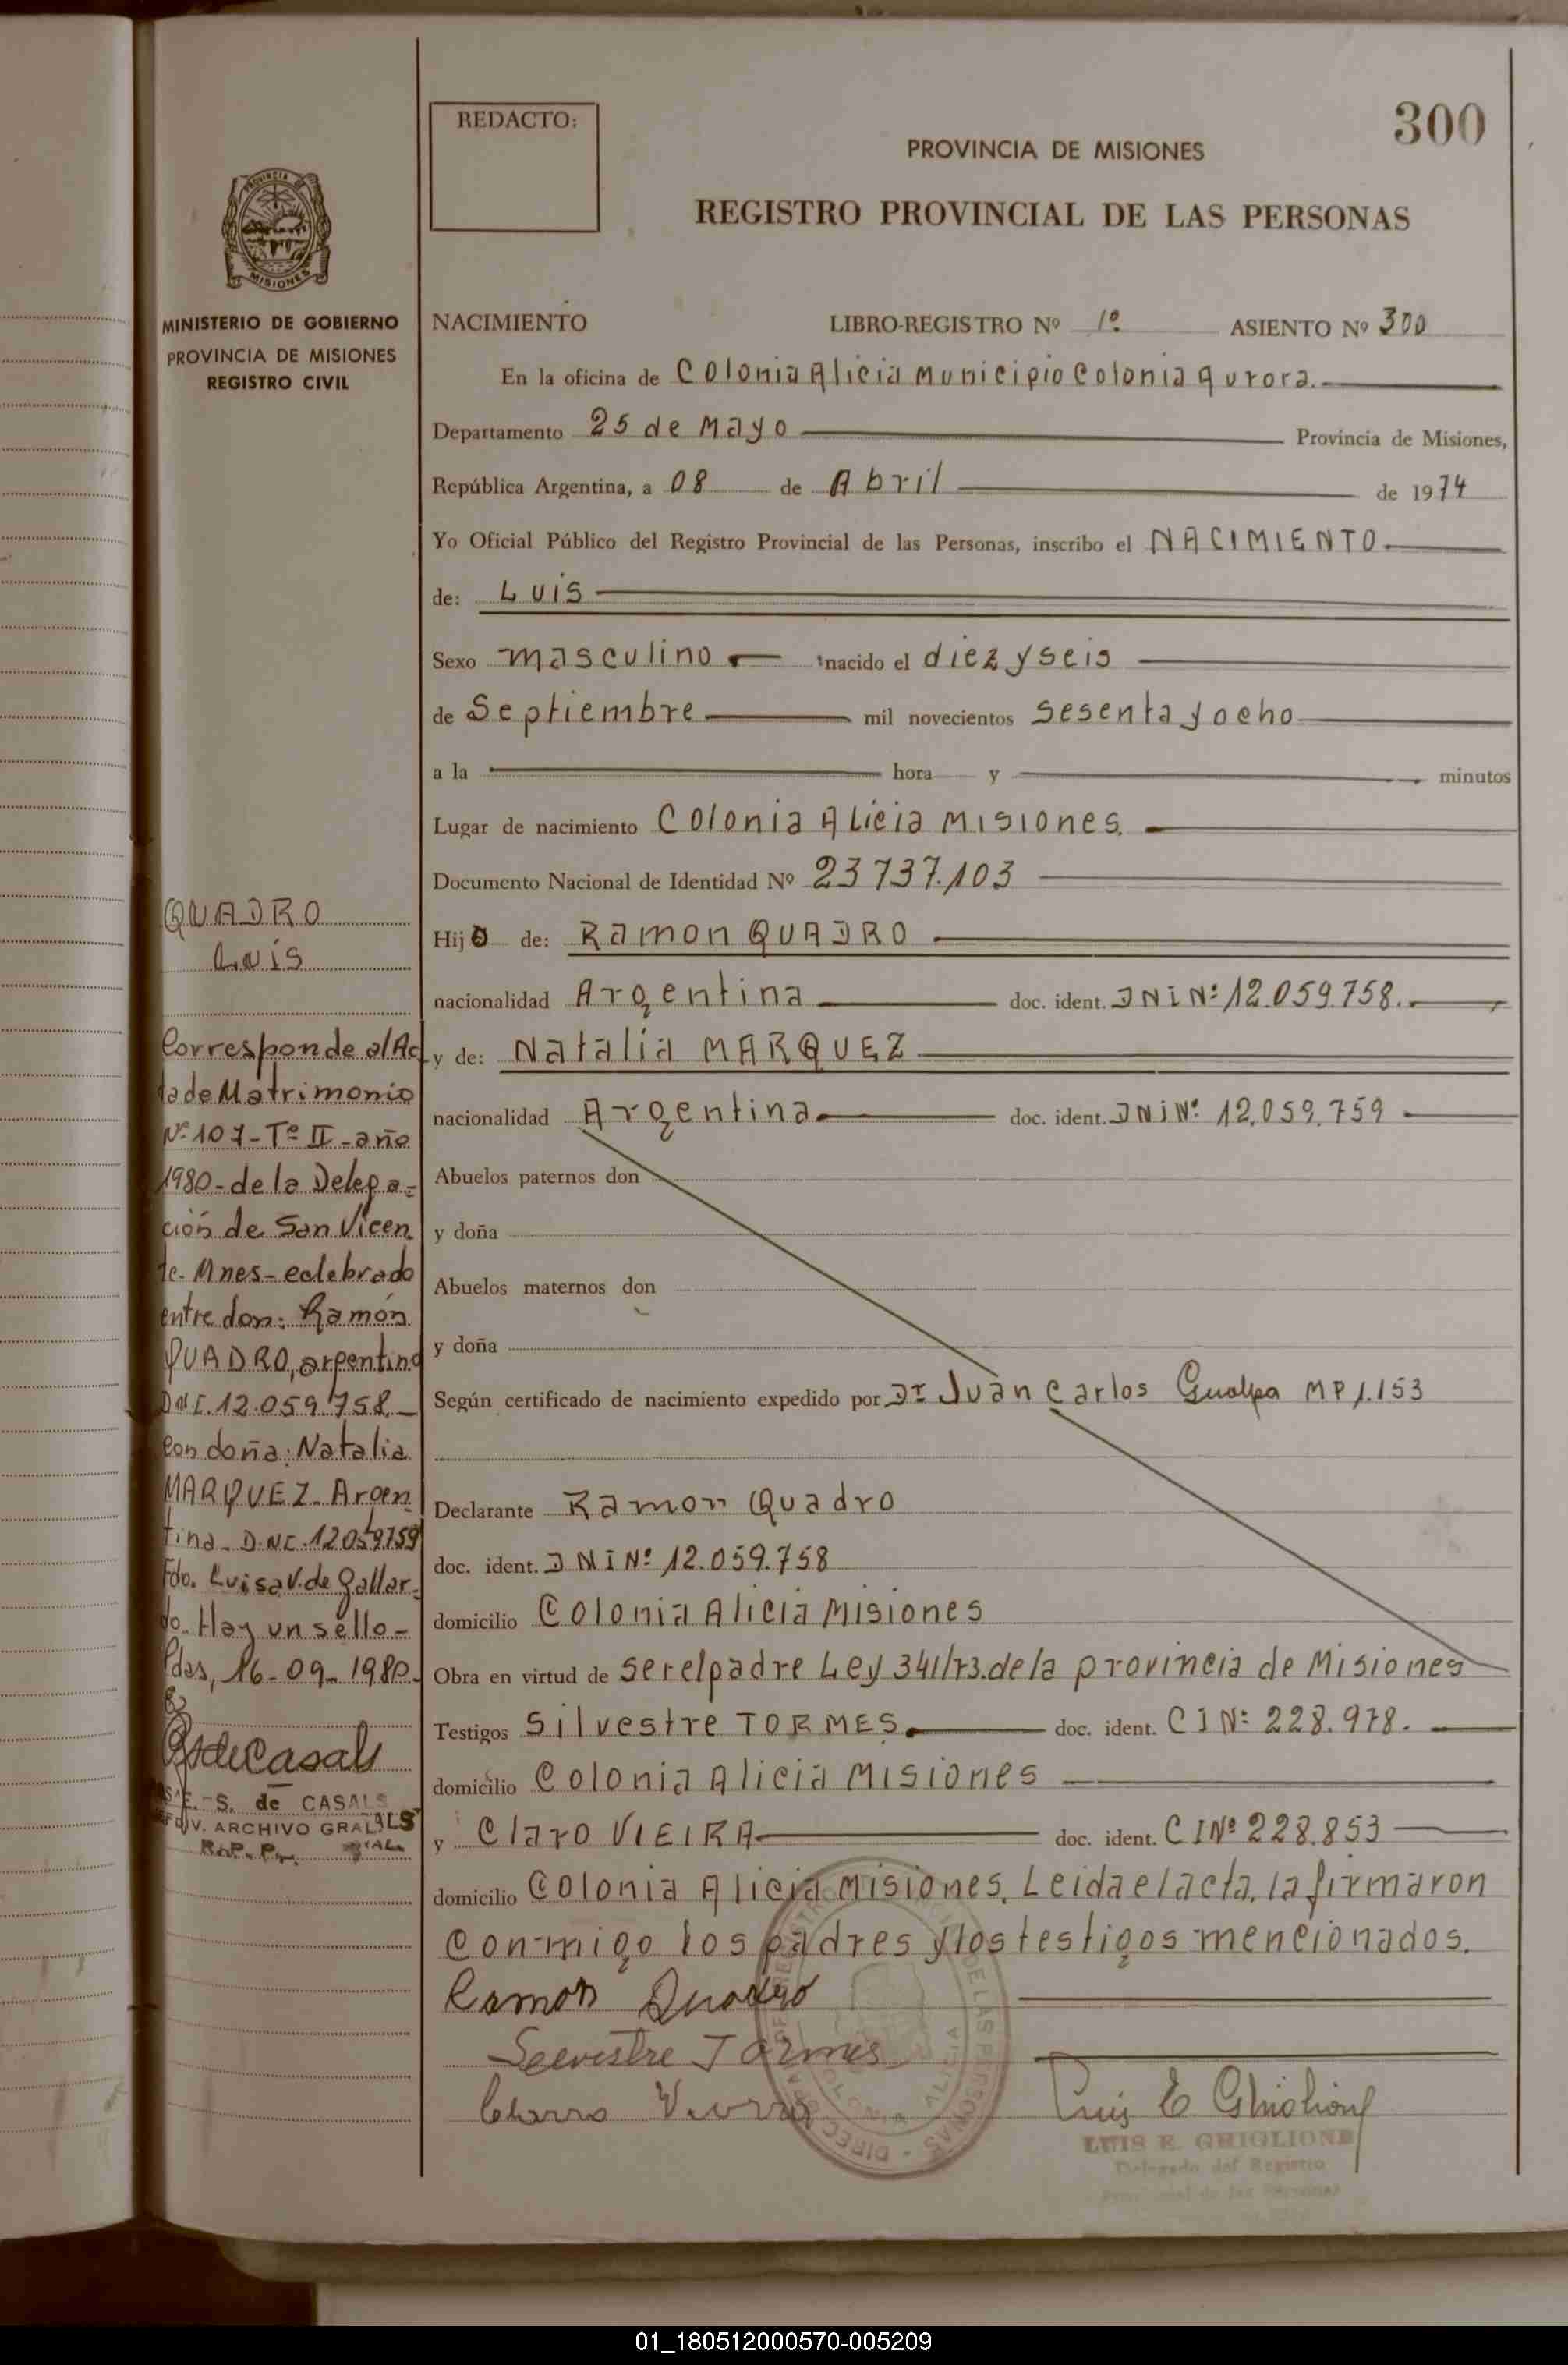 300
REDACTO:
PROVINCIA DE MISIONES
REGISTRO PROVINCIAL DE LAS PERSONAS
PROVINCIA DE
MISIONES
MINISTERIO DE GOBIERNO
PROVINCIA DE MISIONES
REGISTRO CIVIL
QUADRO
Luis
Corresponde al Ac
ta de Matrimonio
Nº 107 - Tº II - año
1980 - de la Delega-
ción de San Vicen
te. Mnes - celebrado
entre don: Ramón
QUADRO, argentino
D.N.I. 12.059.758 -
con doña: Natalia
MARQUEZ - Argen
tina - D.N.I. 12.059.759
Fdo. Luisa V. de Gallar-
do. Hay un sello -
Pdas, 16-09-1980.
E. S. de CASALS
DIV. ARCHIVO GRAL.
R.P.P.
NACIMIENTO LIBRO-REGISTRO Nº 1º ASIENTO Nº 300
En la oficina de Colonia Alicia Municipio Colonia Aurora.
Departamento 25 de Mayo Provincia de Misiones,
República Argentina, a 08 de Abril de 1974
Yo Oficial Público del Registro Provincial de las Personas, inscribo el NACIMIENTO.
de: Luis
Sexo masculino nacido el diez y seis
de Septiembre mil novecientos sesenta y ocho
a la hora y minutos
Lugar de nacimiento Colonia Alicia Misiones.
Documento Nacional de Identidad Nº 23737.103
Hijo de: Ramon QUADRO
nacionalidad Argentina doc. ident. DNI Nº 12.059.758.
y de: Natalia MARQUEZ
nacionalidad Argentina doc. ident. DNI Nº 12.059.759
Abuelos paternos don
y doña
Abuelos maternos don
y doña
Según certificado de nacimiento expedido por Dr Juan Carlos Gualpa MP 1.153
Declarante Ramon Quadro
doc. ident. DNI Nº 12.059.758
domicilio Colonia Alicia Misiones
Obra en virtud de ser el padre Ley 341/73. de la provincia de Misiones
Testigos Silvestre TORMES. doc. ident. CI Nº 228.978.
domicilio Colonia Alicia Misiones
y Claro VIEIRA doc. ident. CI Nº 228.853
domicilio Colonia Alicia Misiones. Leida el acta, la firmaron
conmigo los padres y los testigos mencionados.
Ramon Quadro
Seevestre Tormes
Luis E Ghiglione
LUIS E. GHIGLIONE
Delegado del Registro
Provincial de las Personas
01_180512000570-005209